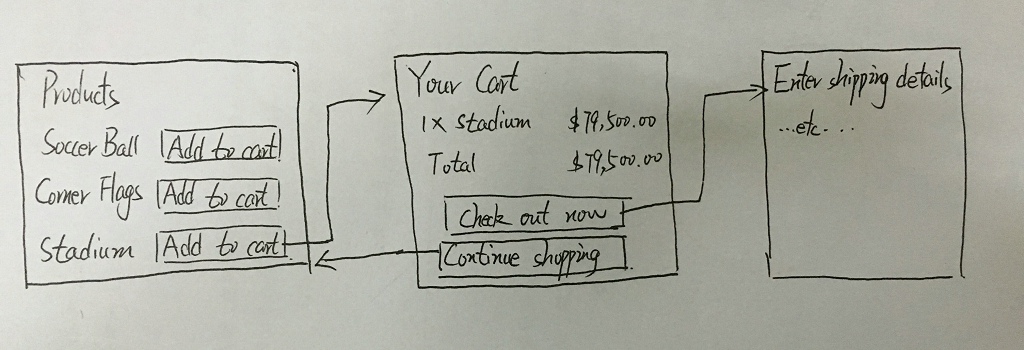 Products
Soccer Ball Add to cart
Corner Flags Add to cart
Stadium Add to cart
Your Cart
1x Stadium $79,500.00
Total $79,500.00
Check out now
Continue shopping
Enter shipping details
...etc...